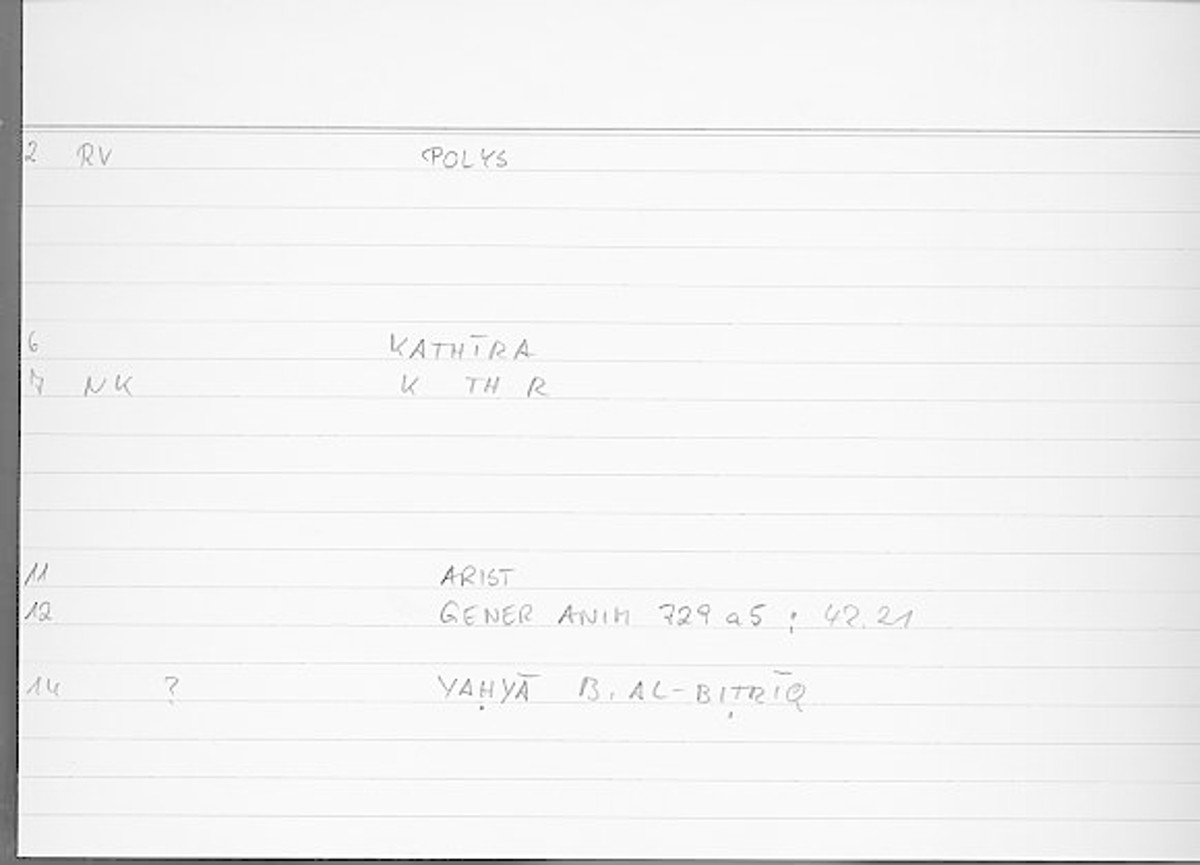 2 RV POLYS
6 KATHĪRA
7 NK K TH R
11 ARIST
12 GENER ANIM 729 a5 ; 42.21
14 ? YAḤYĀ B. AL-BIṬRĪQ